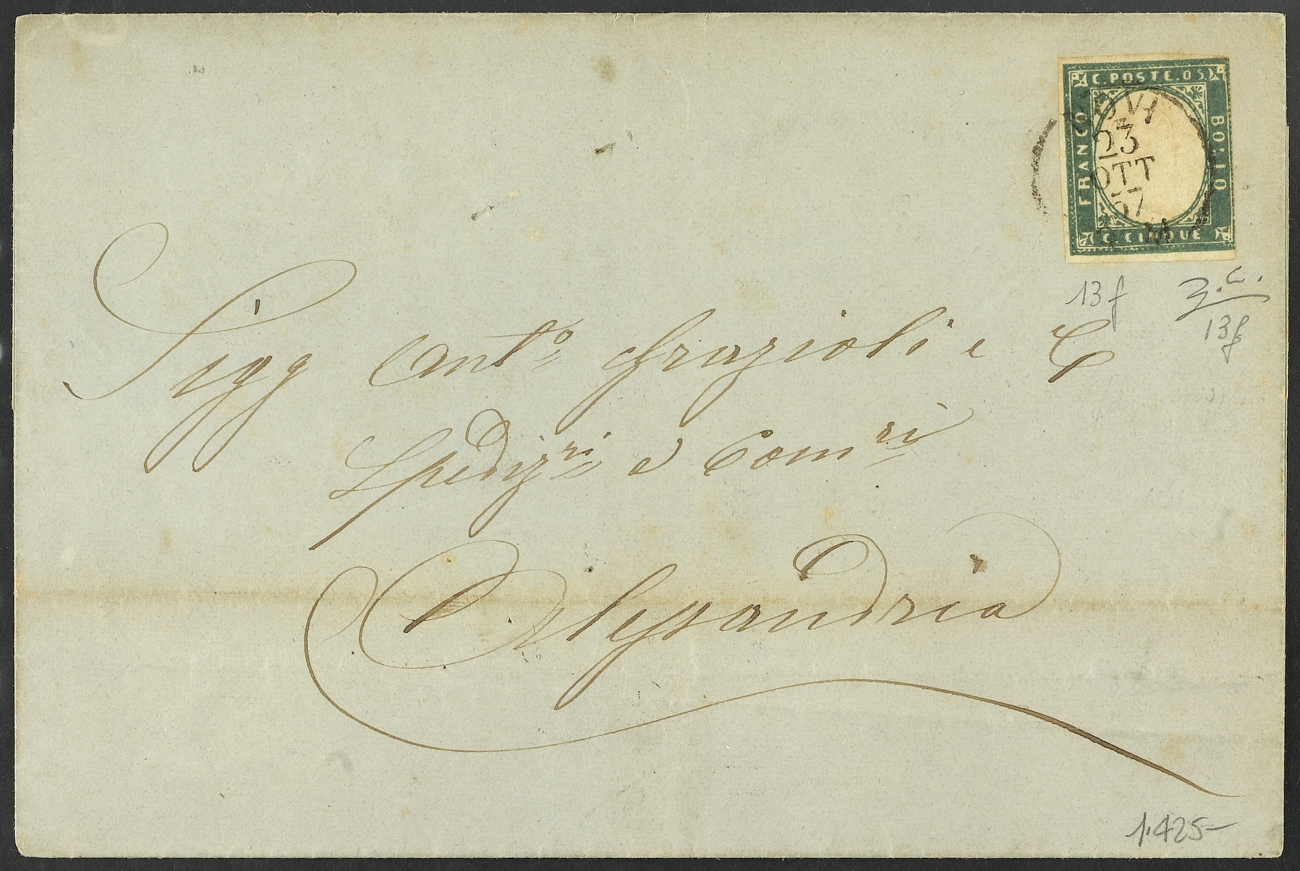 C. POSTE. 05
FRANCO
BOLLO
C. CINQUE
NOVI
23
OTT
57
M
13f
13f
Sigg Ant.º Grazioli e C
Spediz.ri e Com.ri
Alessandria
1.425-